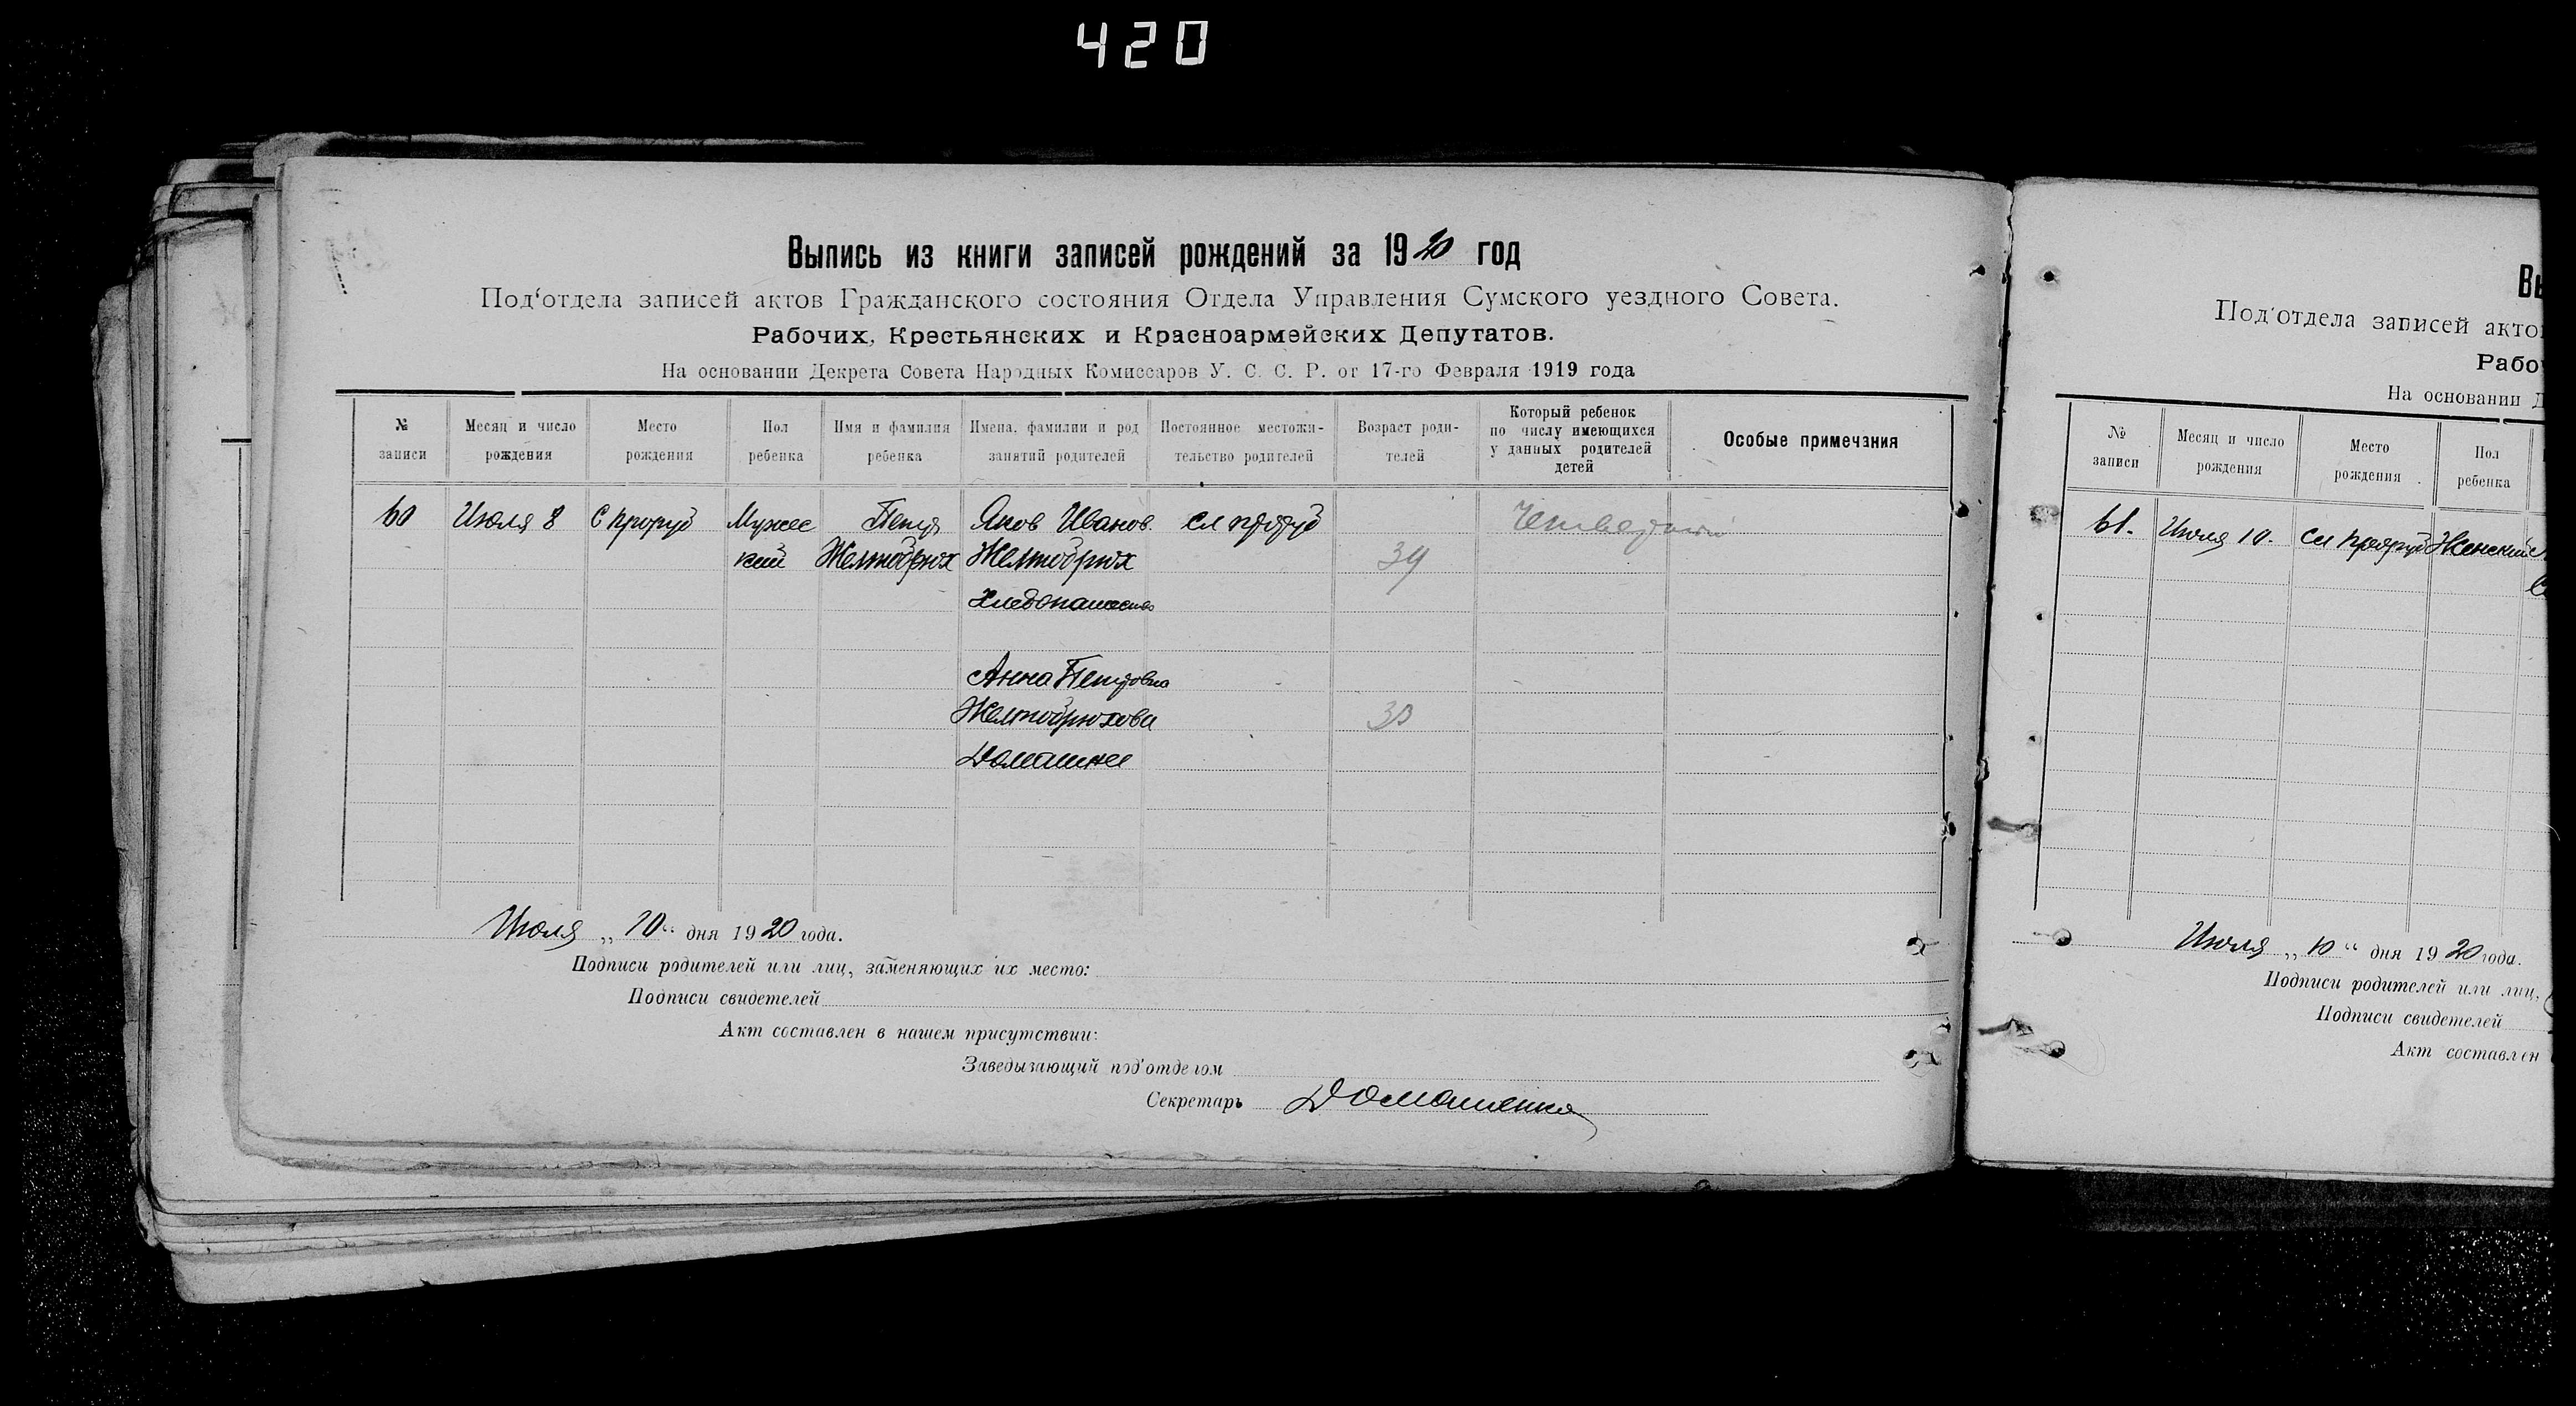 420
Выпись из книги записей рождений за 1920 год
Под‘отдела записей актов Гражданского состояния Отдела Управления Сумского уездного Совета.
Рабочих, Крестьянских и Красноармейских Депутатов.
На основании Декрета Совета Народных Комиссаров У. С. С. Р. от 17-го Февраля 1919 года
№ записи
Месяц и число рождения
Место рождения
Пол ребенка
Имя и фамилия ребенка
Имена, фамилии и род занятий родителей
Постоянное местожительство родителей
Возраст родителей
Который ребенок по числу имеющихся у данных родителей детей
Особые примечания
60 Июля 8 С Проруб Мужес Петр Яков Иванов. сл проруб Четвертый
кий Желтобрюх Желтобрюх 39
Хлебопашество
Анна Петровна
Желтобрюхова 30
Домашнее
Июля „10“ дня 1920 года.
Подписи родителей или лиц, заменяющих их место:
Подписи свидетелей
Акт составлен в нашем присутствии:
Заведызающий под‘отделом
Секретарь Домашенко
Вы
Под‘отдела записей акто
Рабо
На основании Д
№ записи
Месяц и число рождения
Место рождения
Пол ребенка
61. Июля 10. сл Проруб Женский
Июля „10“ дня 1920 года.
Подписи родителей или лиц,
Подписи свидетелей
Акт составлен